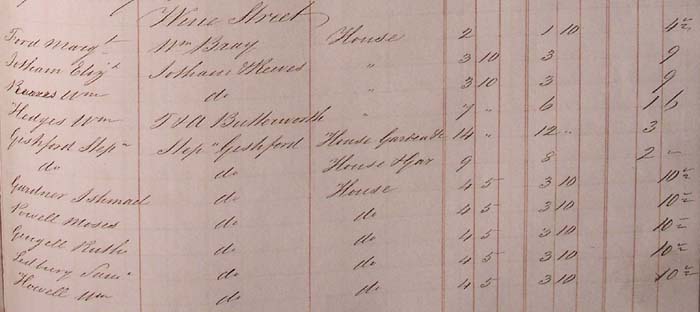 Wine Street
Ford Margt Wm Bray House 2 1 10 4½
Jotham Elizt Jotham & Reeves " 3 10 3 9
Reeves Wm do " 3 10 3 9
Hedges Wm T & A Butterworth " 7 " 6 1 6
Gishford Stepn Stepn Gishford House Garden &c 14 " 12 " 3
do do House & Gar 9 8 2 "
Gardner Ishmael do House 4 5 3 10 10½
Powell Moses do do 4 5 3 10 10½
Gingell Ruth do do 4 5 3 10 10½
Ledbury Saml do do 4 5 3 10 10½
Howell Wm do do 4 5 3 10 10½